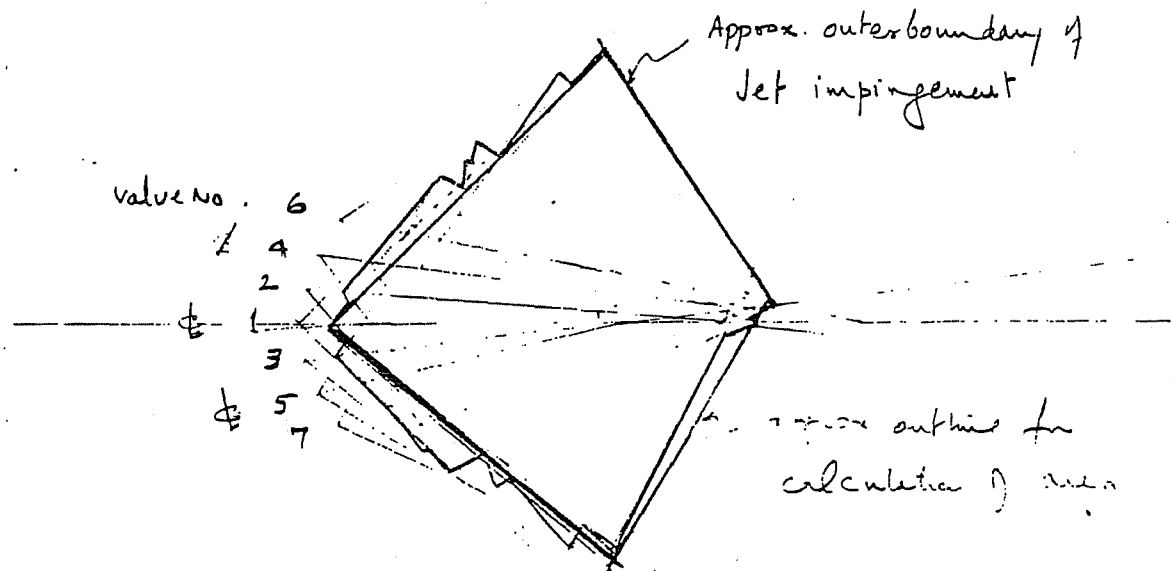 Approx. outer boundary of
Jet impingement
valve No. 6
4
2
℄ 1
3
℄ 5
7
outline for
calculation of